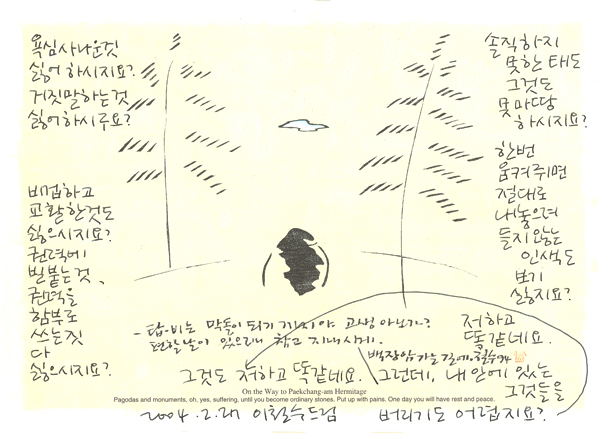 욕심사나운짓
싫어하시지요?
거짓말하는것
싫어하시구요?
비겁하고
교활한것도
싫으시지요?
권력에
빌붙는것,
권력을
함부로
쓰는짓
다
싫으시지요?
솔직하지
못한 태도
그것도
못마땅
하시지요?
한번
움켜쥐면
절대로
내놓으려
들지 않는
인색도
보기
싫지요?
저하고
똑같네요.
- 탑·비는 막돌이 되기 까지야 고생 아닌가?
편할날이 있으리니 참고 지내시게.
백장암가는길에. 철수94
그것도 저하고 똑같네요. 그런데, 내 안에 있는
그것들을
On the Way to Paekchang-am Hermitage
Pagodas and monuments, oh, yes, suffering, until you become ordinary stones. Put up with pains. One day you will have rest and peace.
2004.2.27 이철수드림 버리기도 어렵지요?